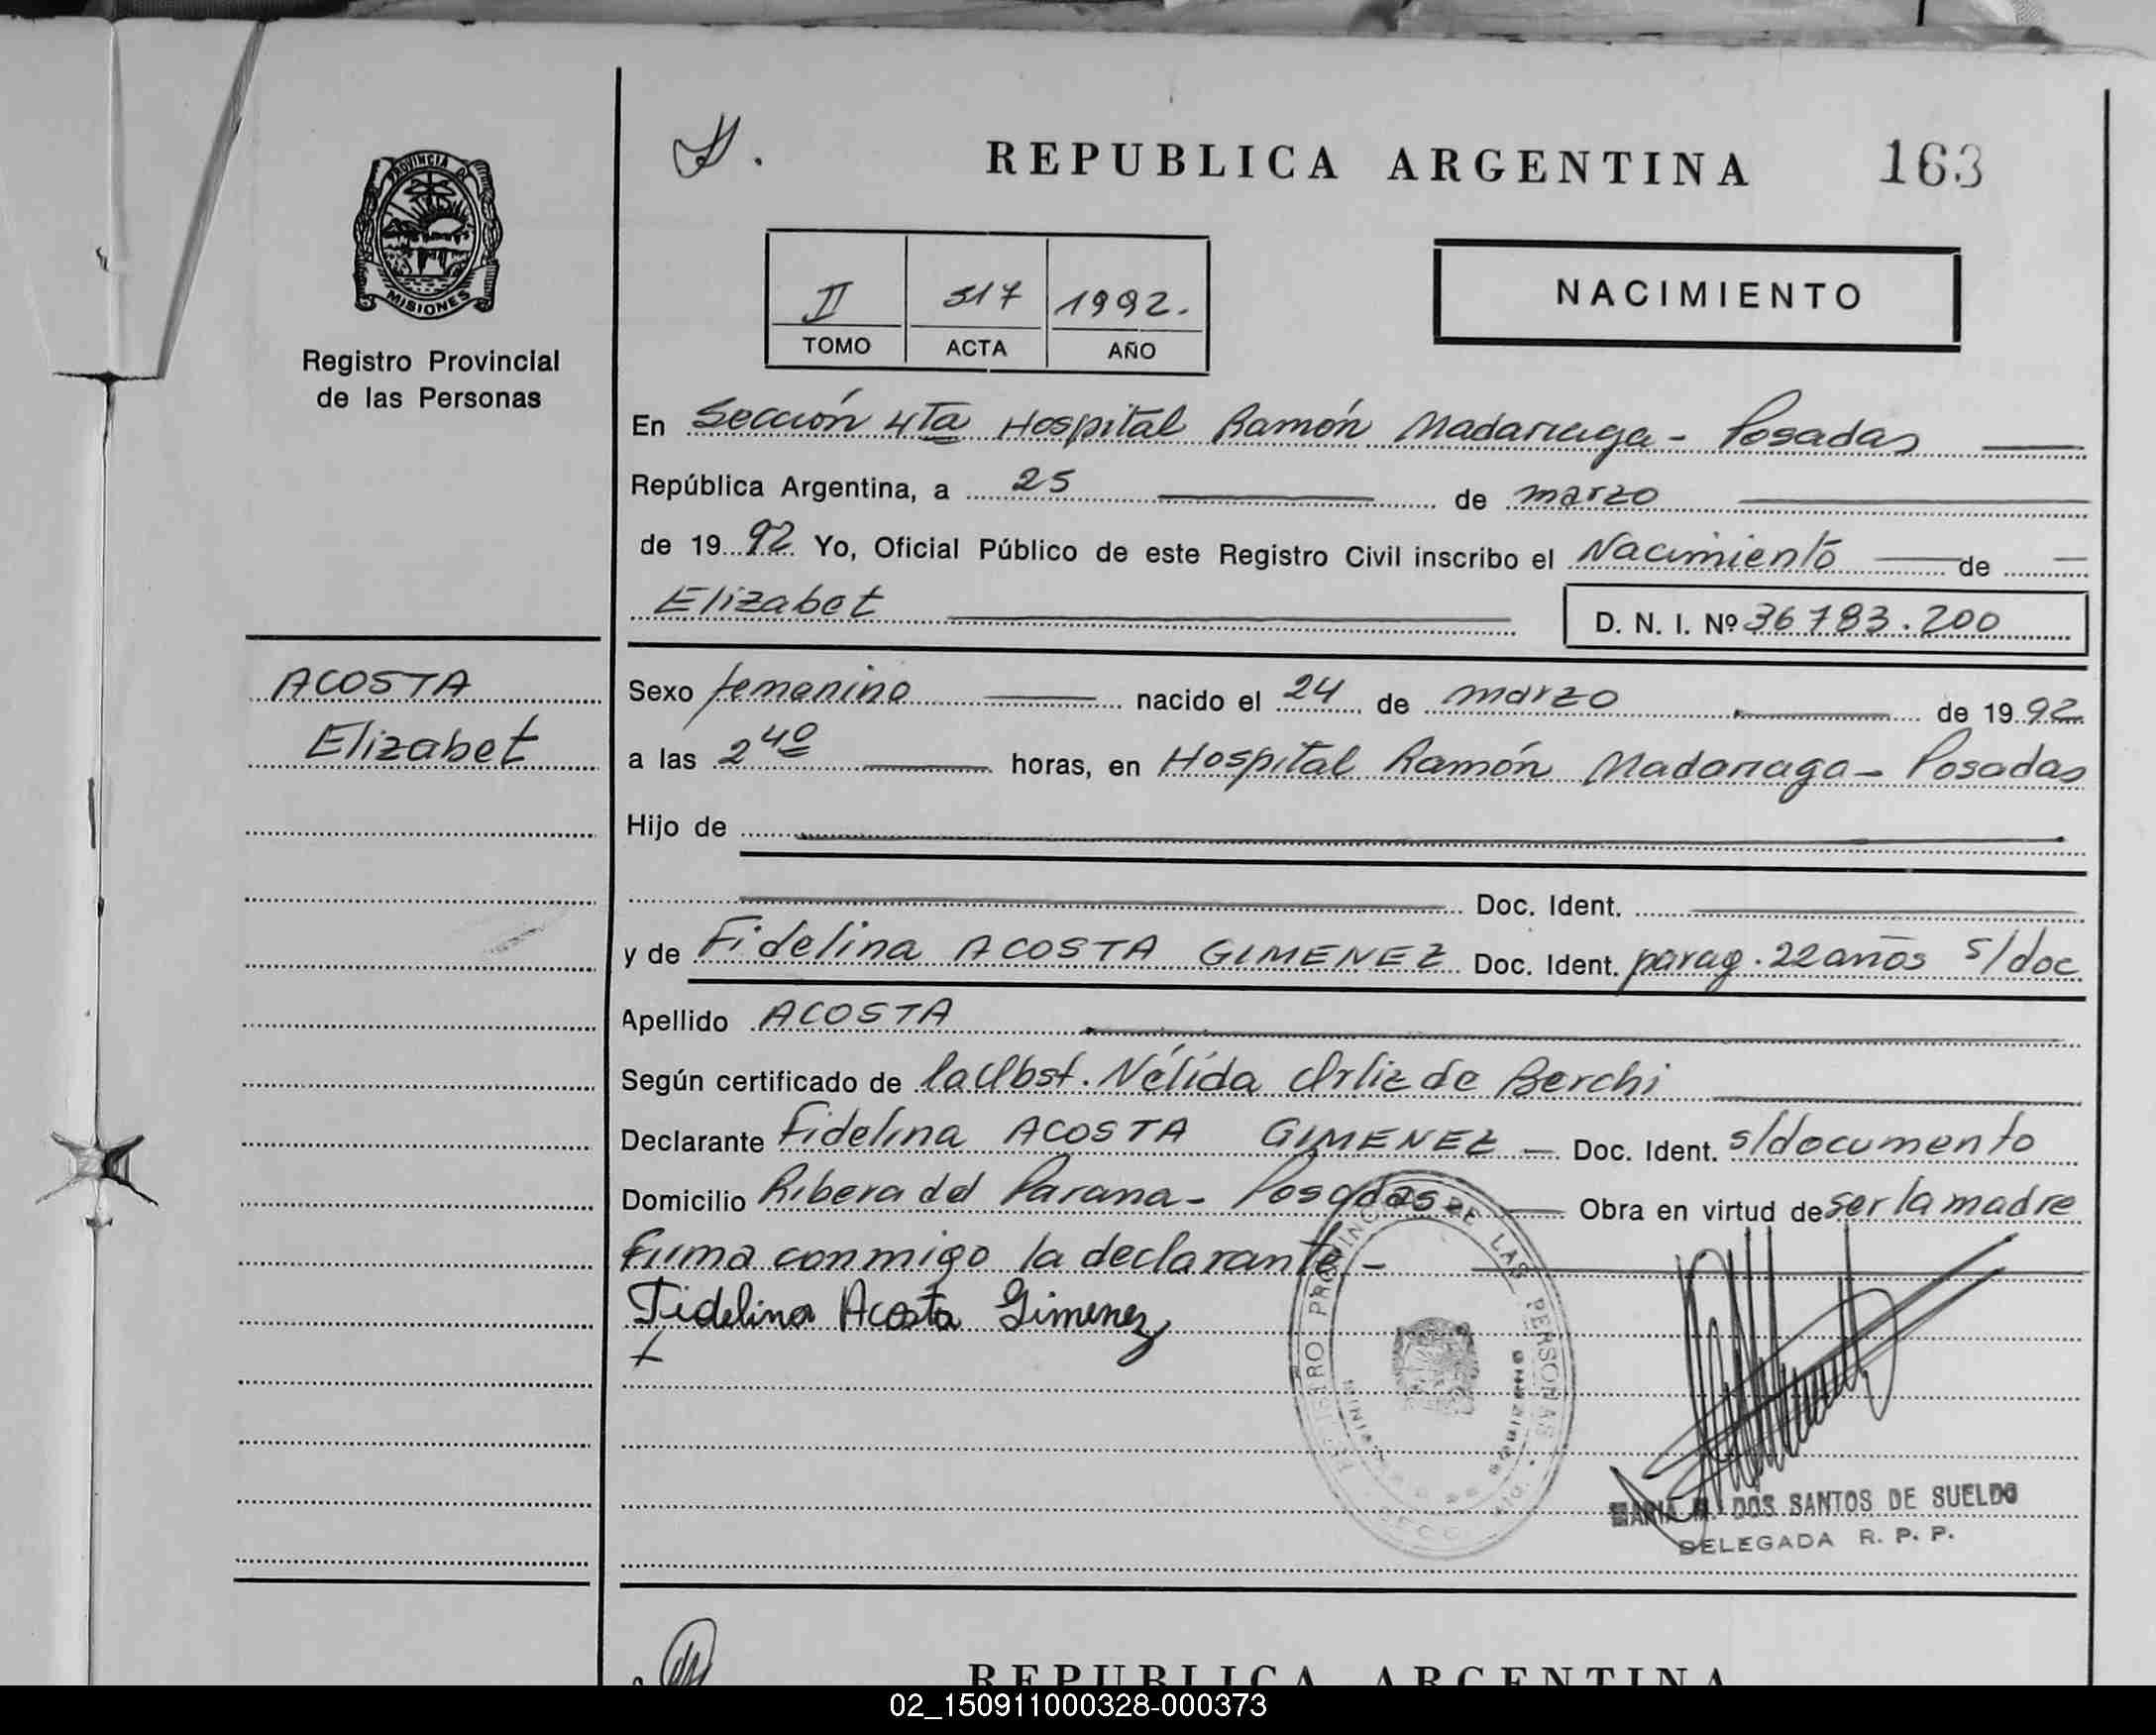 PROVINCIA DE
MISIONES
Registro Provincial
de las Personas
ACOSTA
Elizabet
REPUBLICA ARGENTINA 163
II 517 1992.
TOMO ACTA AÑO
NACIMIENTO
En Sección 4ta Hospital Ramón Madariaga - Posadas
República Argentina, a 25 de marzo
de 1992 Yo, Oficial Público de este Registro Civil inscribo el Nacimiento de
Elizabet D. N. I. Nº 36783.200
Sexo femenino nacido el 24 de marzo de 1992
a las 2 40 horas, en Hospital Ramón Madariaga - Posadas
Hijo de
Doc. Ident.
y de Fidelina ACOSTA GIMENEZ Doc. Ident. parag. 22 años s/doc
Apellido ACOSTA
Según certificado de la Obst. Nélida Ortiz de Berchi
Declarante Fidelina ACOSTA GIMENEZ - Doc. Ident. s/documento
Domicilio Ribera del Parana - Posadas - Obra en virtud de ser la madre
firma conmigo la declarante -
Fidelina Acosta Gimenez
REGISTRO PROVINCIAL DE LAS PERSONAS
MARIA M. DOS SANTOS DE SUELDO
DELEGADA R. P. P.
REPUBLICA ARGENTINA
02_150911000328-000373